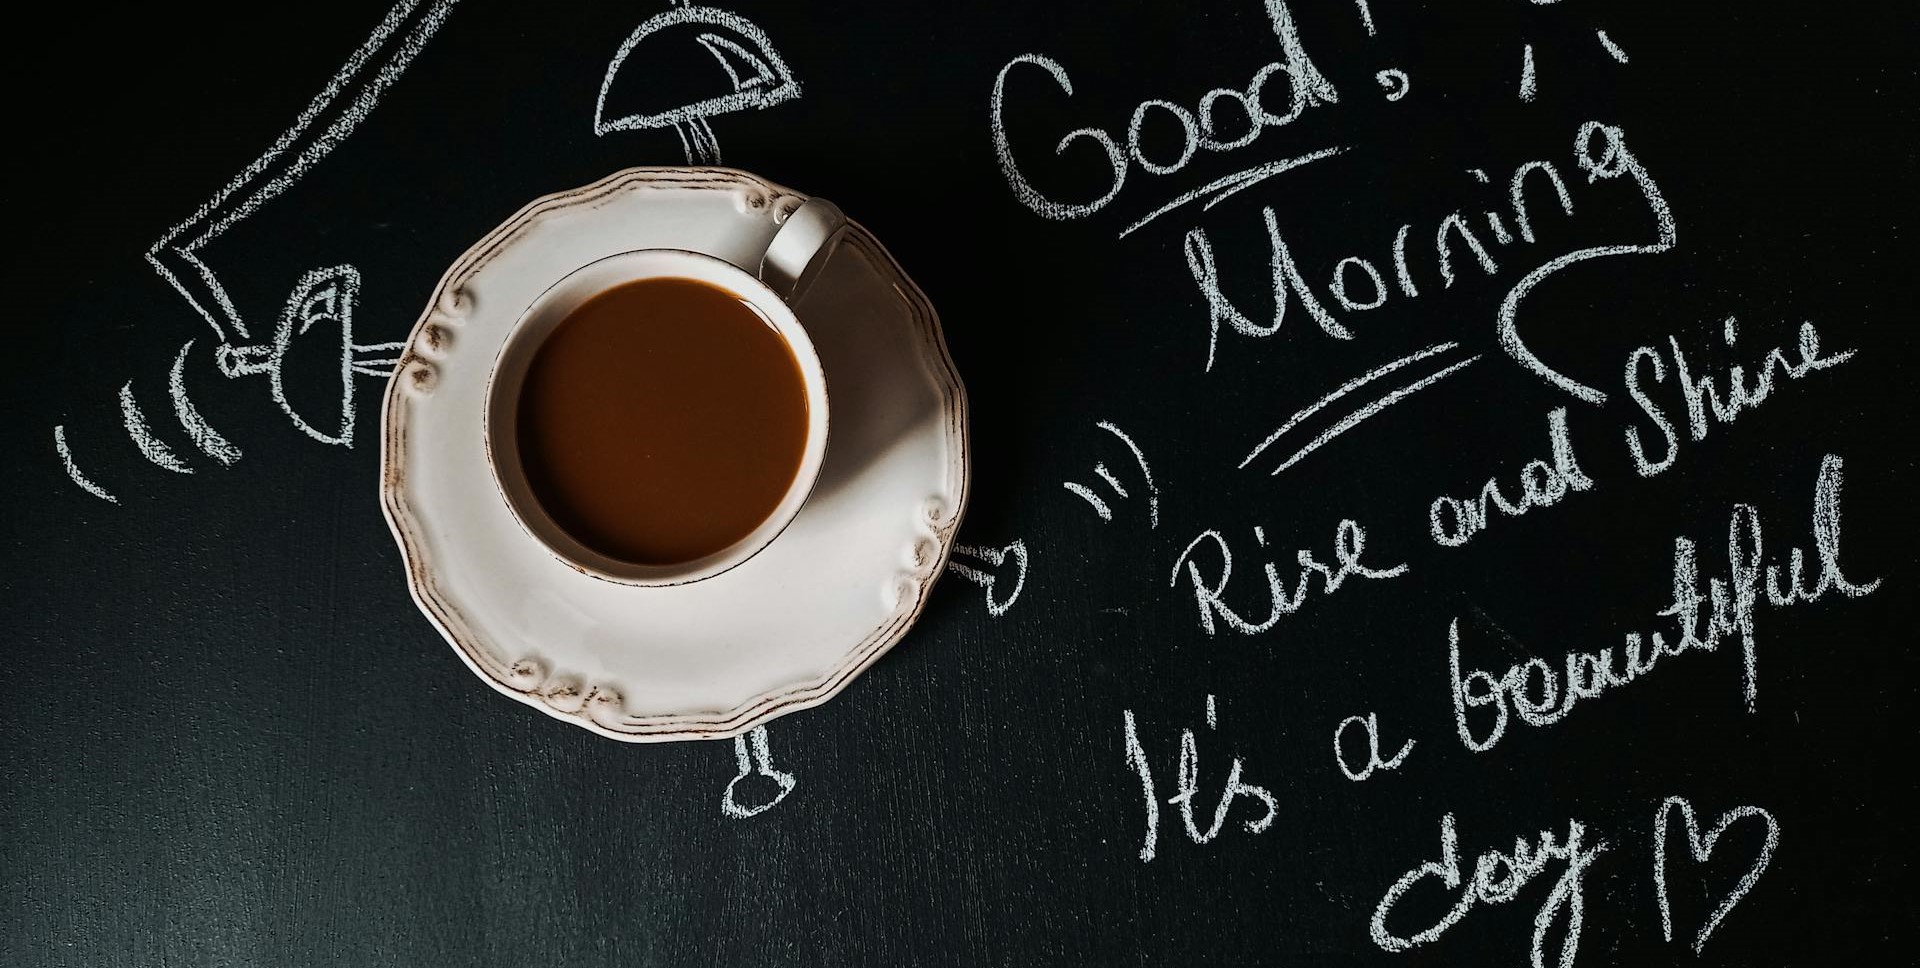 Good!
Morning
Rise and Shine
It's a beautiful
day